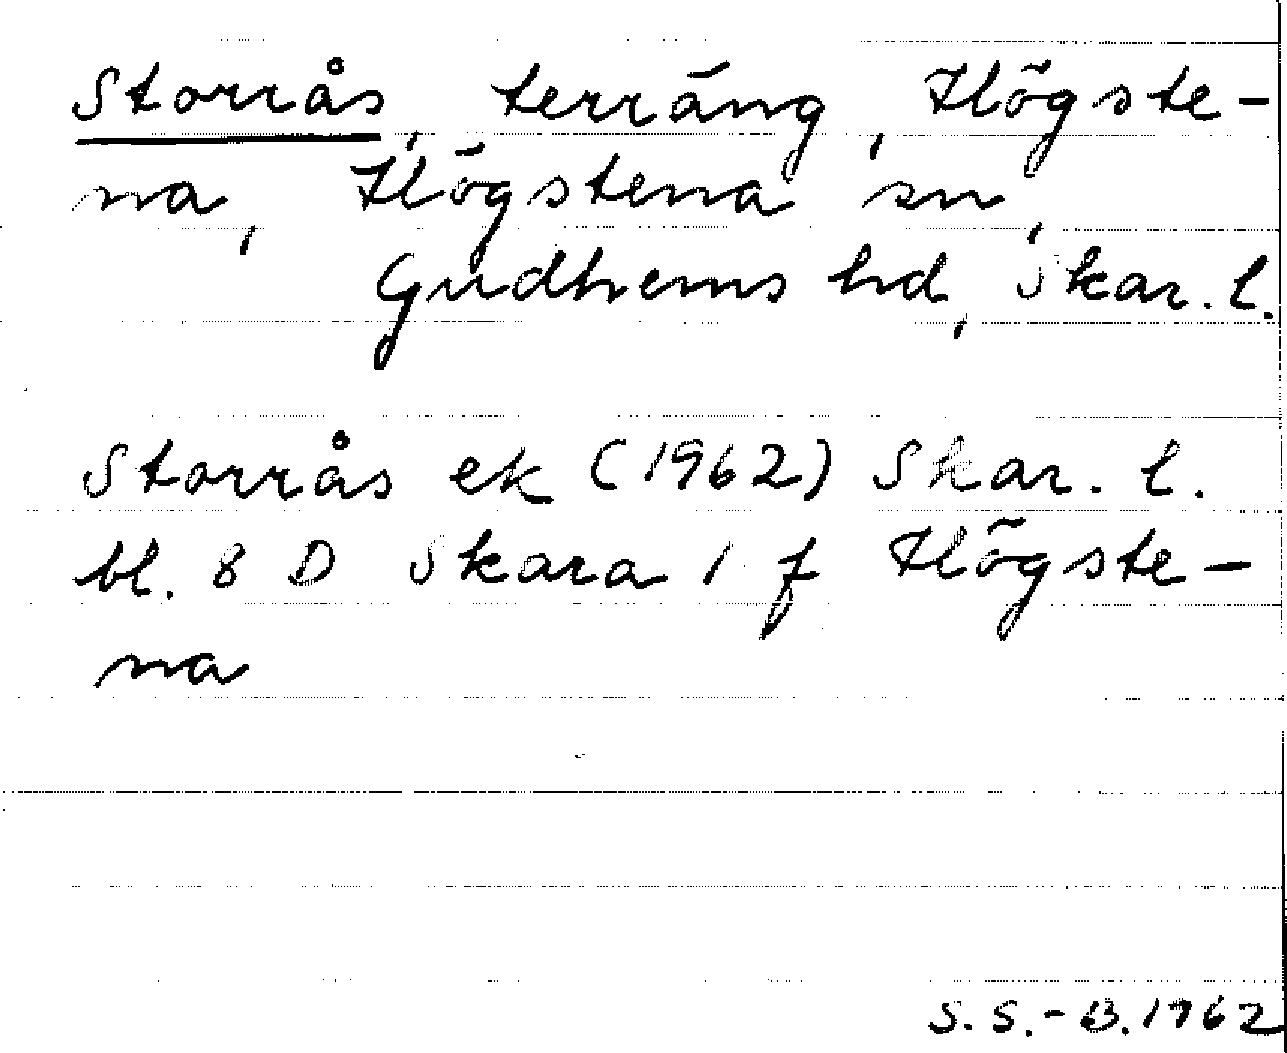 Storrås, terräng, Högste-
na, Högstena sn,
Gudhems hd, Skar. l.
Storrås ek (1962) Skar. l.
bl. 8 D Skara 1 f Högste-
na
S. S.-B. 1962